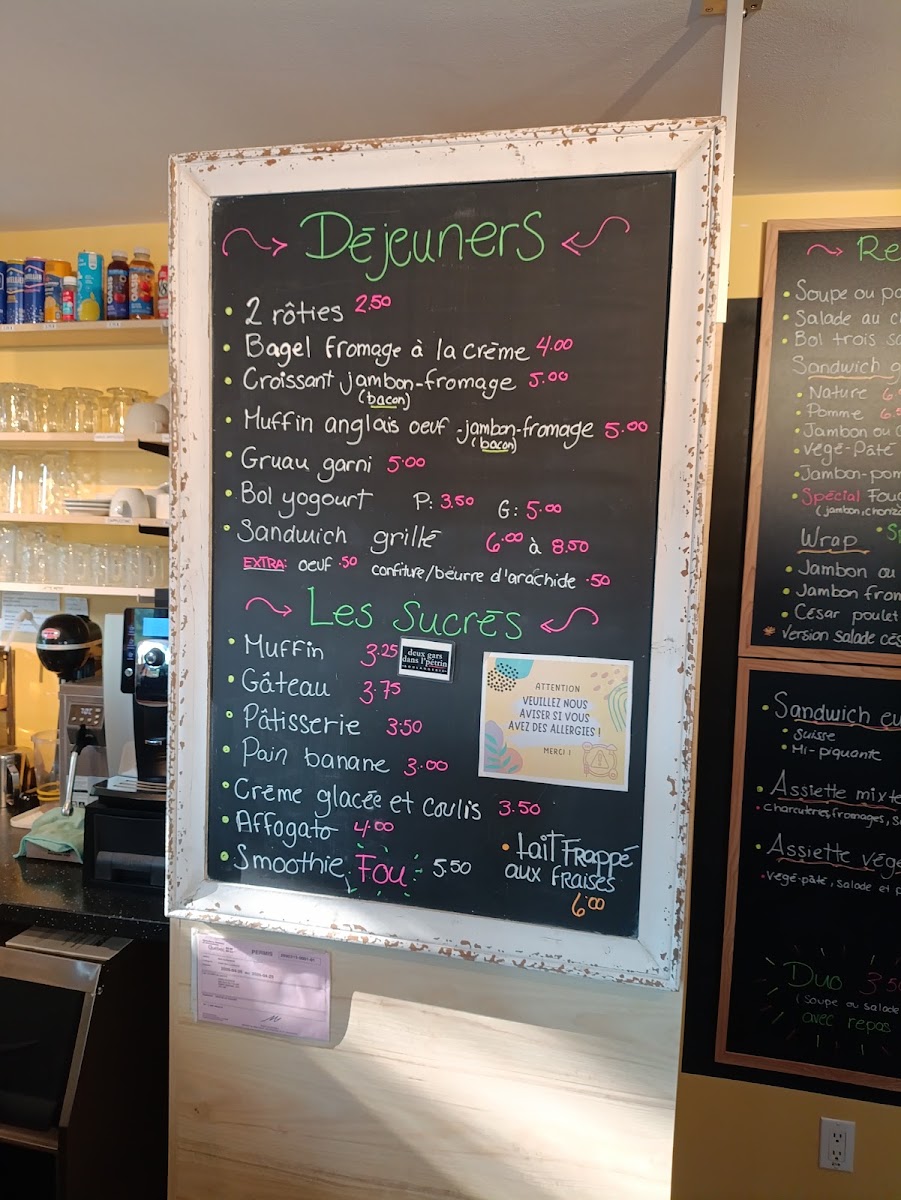 Déjeuners
2 rôties 2.50
Bagel fromage à la crème 4.00
Croissant jambon-fromage 5.00
(bacon)
Muffin anglais oeuf-jambon-fromage 5.00
(bacon)
Gruau garni 5.00
Bol yogourt P: 3.50 G: 5.00
Sandwich grillé 6.00 à 8.50
EXTRA: oeuf .50 confiture/beurre d'arachide .50
Les Sucrés
Muffin 3.25
Gâteau 3.75
Pâtisserie 3.50
Pain banane 3.00
Crème glacée et coulis 3.50
Affogato 4.00
Smoothie Fou 5.50
Lait Frappé
aux fraises
6.00
deux gars
dans l'pétrin
ATTENTION
VEUILLEZ NOUS
AVISER SI VOUS
AVEZ DES ALLERGIES !
MERCI !
PERMIS
Re
Soupe ou po
Salade au c
Bol trois sa
Sandwich g
Nature 6
Pomme 6
Jambon ou
Végé-Pâté
Jambon-pom
Spécial Fou
(jambon, choriz
Wrap
Jambon ou
Jambon from
César poulet
* Version salade cés
Sandwich eu
Suisse
Mi-piquante
Assiette mixte
charcuteries, fromages, s
Assiette végé
végé-pâté, salade et
Duo 3.50
(Soupe ou salade
avec repas
OASIS
OASIS